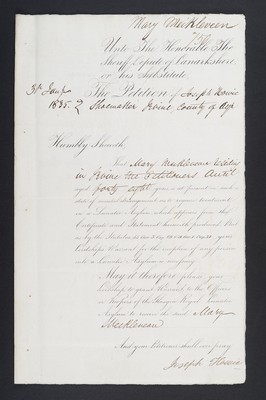 Mary Meekleven
Unto The Honorable The
Sheriff Depute of Lanarkshire
or his Substitute.
The Petition of Joseph Howie
Shoemaker Irvine, County of Ayr
1835.
Humbly Sheweth,
That Mary Meekleven residing
in Irvine the Petitioners Aunt
aged forty eight years is at present in such
state of mental derangement as to require treatment
in a Lunatic Asylum which appears from the
Certificate and Statement herewith produced. But
as by the Statutes it is necessary your
Lordships Warrant for the reception of any person
into a Lunatic Asylum is necessary.
May it therefore please your
Lordship to grant Warrant to the Officers
or Keepers of the Glasgow Royal Lunatic
Asylum to receive the said Mary
Meekleven
And your Petitioner shall ever pray.
Joseph Howie